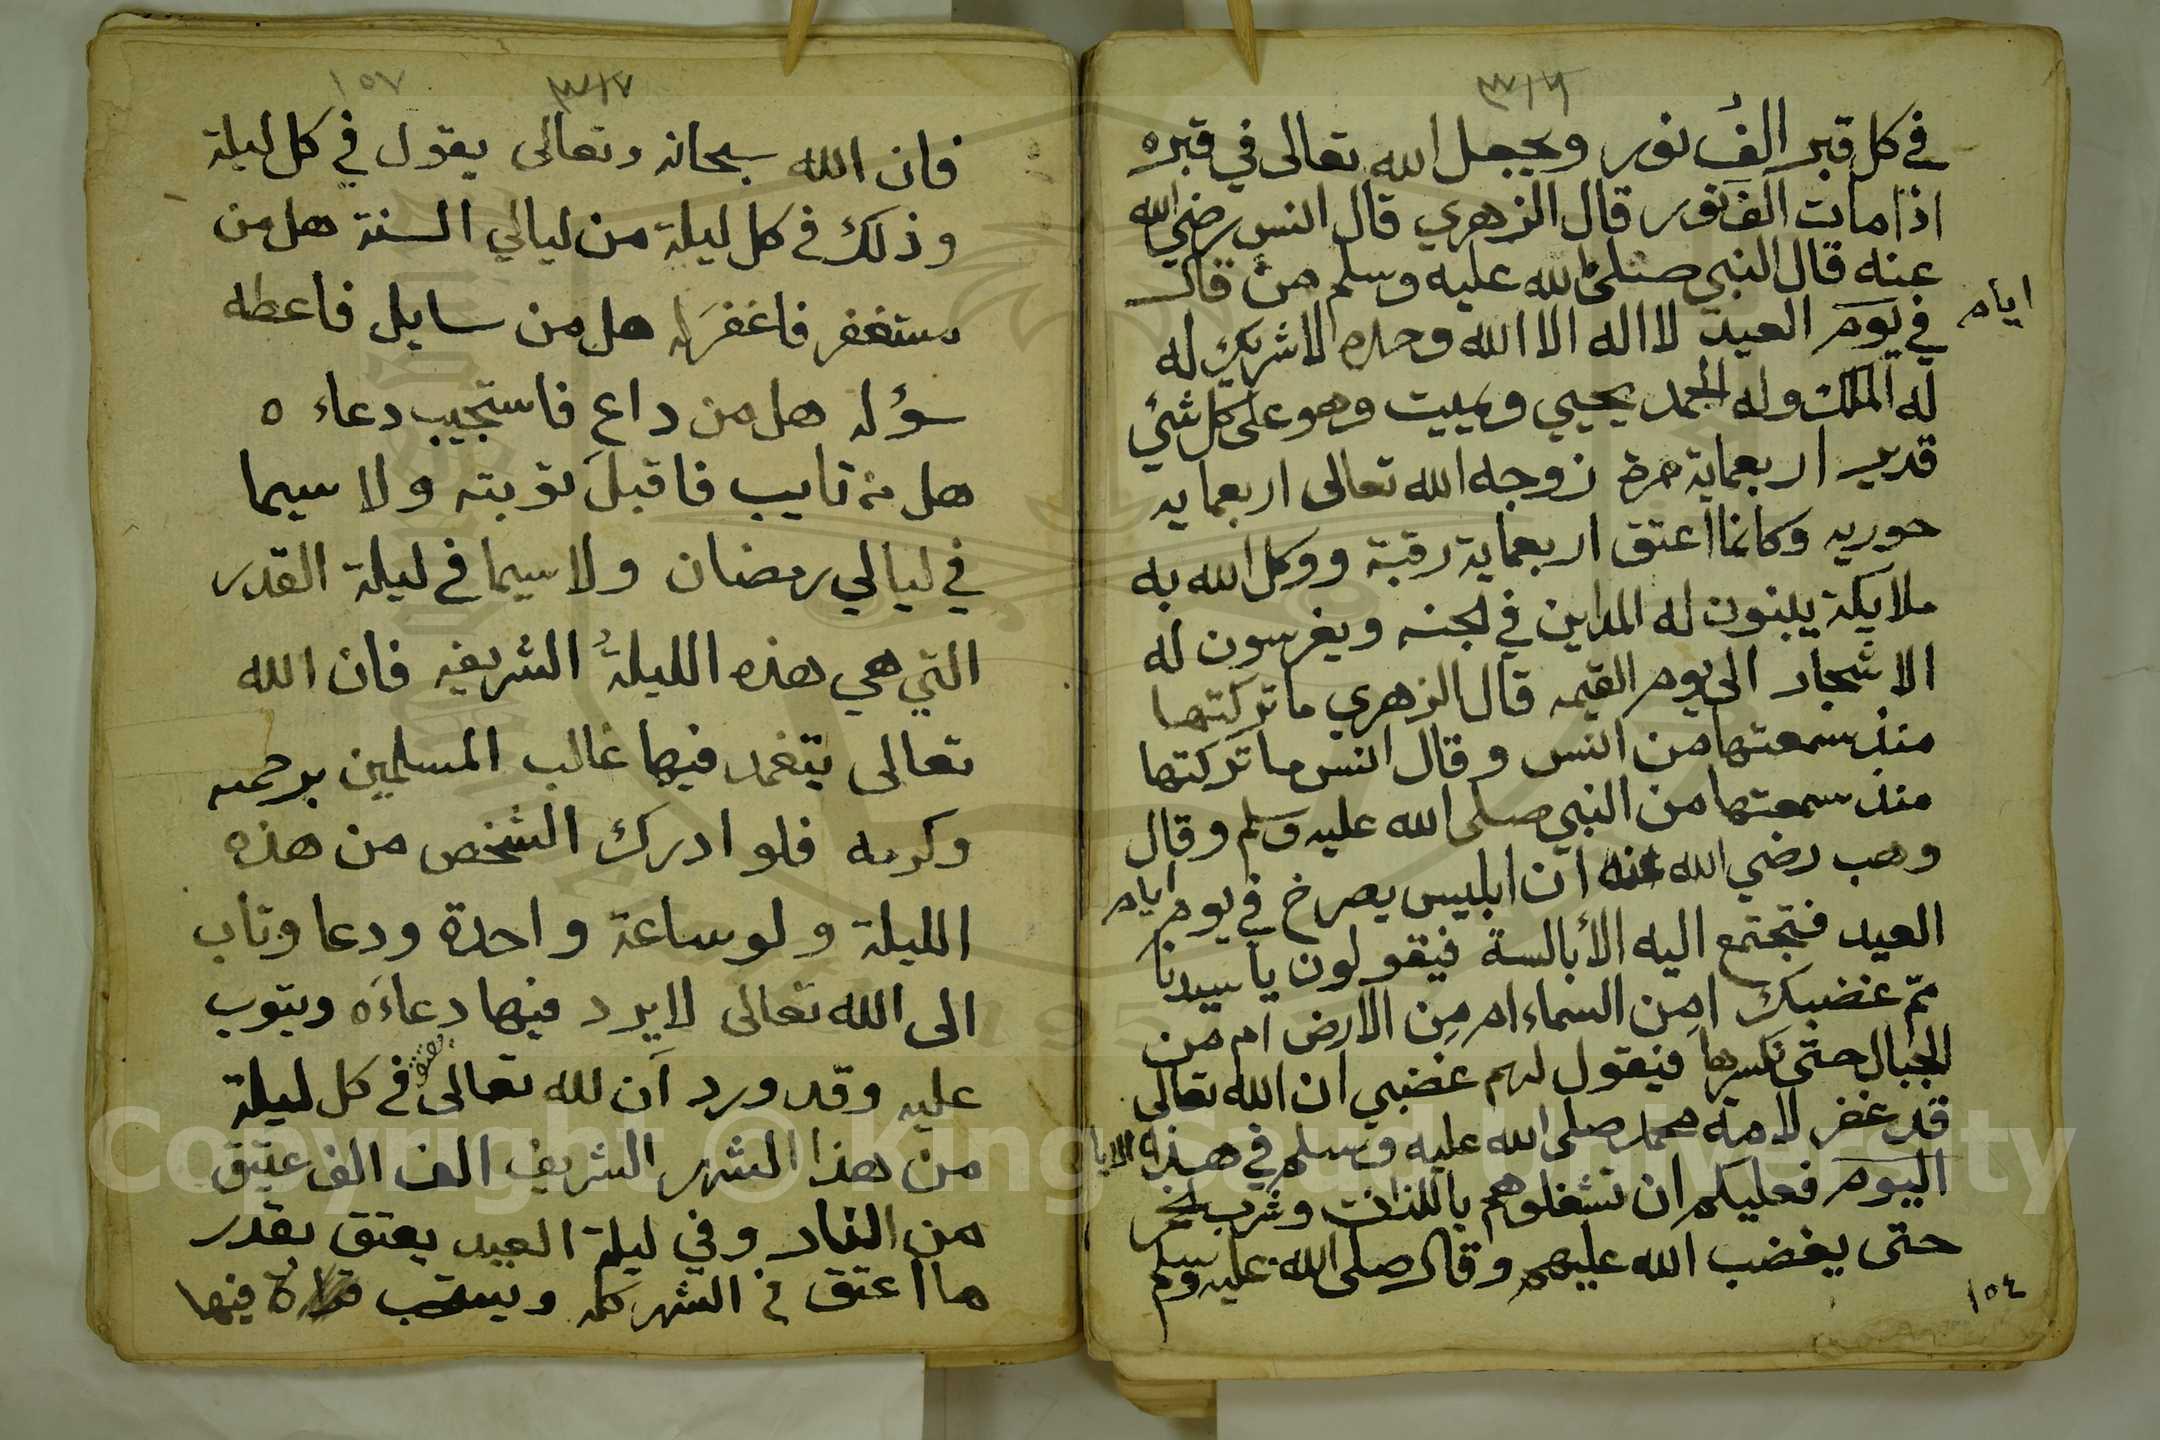 ٣١٦
في كل قبر الفُ نور ويجعل الله تعالى في قبره
اذا مات الف نور قال الزهري قال انس رضي الله
عنه قال النبي صلى الله عليه وسلم من قال
ايام
في يوم العيد لا اله الا الله وحده لا شريك له
له الملك وله الحمد يحيي ويميت وهو على كل شئ
قدير اربعماية مرة زوجه الله تعالى اربعمايه
حوريه وكانما اعتق اربعماية رقبة ووكل الله به
ملايكة يبنون له المداين في الجنه ويغرسون له
الاشجار الى يوم القيمه قال الزهري ما تركتها
منذ سمعتها من انس وقال انس ما تركتها
منذ سمعتها من النبي صلى الله عليه وسلم وقال
وهب رضي الله عنه ان ابليس يصرخ في يوم
ايام
العيد فتجتمع اليه الأبالسة فيقولون يا سيدنا
ممّ غضبك امن السماء ام مِن الارض ام من
الجبال حتى نكسرها فيقول لهم غضبي ان الله تعالى
قد غفر لامة محمد صلى الله عليه وسلم في هذا
اليوم فعليكم ان تشغلوهم باللذات وشرب الخمر
حتى يغضب الله عليهم وقال صلى الله عليه وسلم
١٥٤
١٥٧
٣١٧
فان الله سبحانه وتعالى يقول في كل ليلة
وذلك في كل ليلة من ليالي السنة هل من
مستغفر فاغفرَ له هل من سايل فاعطه
سؤله هل من داعٍ فاستجيب دعاءه
هل من تايب فاقبلَ توبته ولا سيما
في ليالي رمضان ولا سيما في ليلة القدر
التي هي هذه الليلةُ الشريفه فان الله
تعالى يتغمد فيها غالب المسلمين برحمته
وكرمه فلو ادرك الشخص من هذه
الليلة ولو ساعة واحدة ودعا وتاب
الى الله تعالى لا يرد فيها دعاءَه ويتوب
عليه وقد ورد أن لله تعالى في كل ليلة
من هذا الشهر الشريف الف الف عتيق
من النار وفي ليلة العيد يعتق بقدر
ما اعتق في الشهر كله ويستحب فيها
Copyright © King Saud University